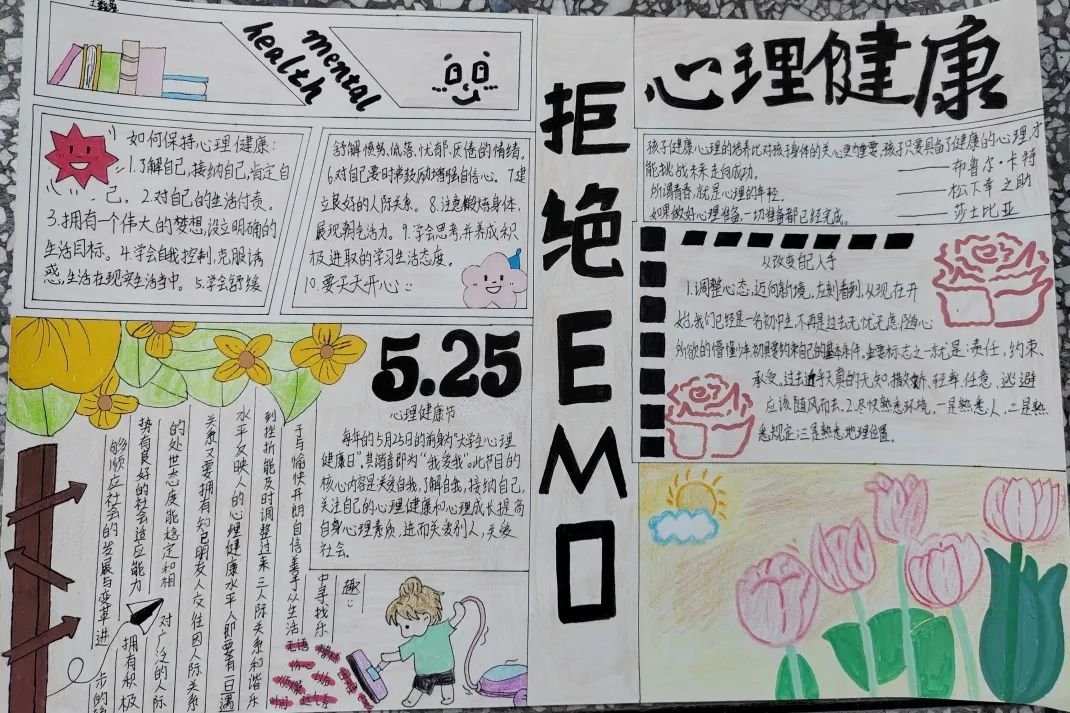 mental
health
拒绝EMO
心理健康
如何保持心理健康:
1.了解自己,接纳自己,肯定自
己。2.对自己的生活付责。
3.拥有一个伟大的梦想,设立明确的
生活目标。4.学会自我控制,克服诱
惑,生活在现实生活当中。5.学会舒缓
舒解愤怒、低落、忧郁、厌倦的情绪。
6.对自己要时常鼓励增强自信心。7.建
立良好的人际关系。8.注意锻炼身体,
展现朝气活力。9.学会思考,并养成积
极进取的学习生活态度。
10.要天天开心
孩子健康心理的培养比对孩子身体的关心更重要,孩子只要具备了健康的心理,才
能挑战未来走向成功。——布鲁尔·卡特
所谓青春,就是心理的年轻。——松下幸之助
如果做好心理准备,一切准备都已经完成。——莎士比亚
从改变自己入手
1.调整心态,迈向新境。左刻看到,从现在开
始,我们已经是一名初中生,不再是过去无忧无虑,随心
所欲的懵懂少年,初具要约束自己的基本条件。重要标志之一就是:责任,约束、
承受。过去近乎天真的无知、撒娇、轻率、任意、逃避
应该随风而去。2.尽快熟悉环境。一是熟悉人,二是熟
悉规定;三是熟悉地理位置。
5.25
心理健康节
每年的5月25日的前身为“大学生心理
健康日”。其谐音即为“我爱我”。此节目的
核心内容是关爱自我,了解自我,接纳自己,
关注自己的心理健康和心理成长提高
自身心理素质,进而关爱别人,关爱
社会。
于与愉快开朗自信善于从生活
中寻找乐
趣
到挫折能及时调整过来 三人际关系和谐乐
水平反映人的心理健康水平人即要有一日遇
关系又要拥有知已朋友人交往因人际关系
的处世态度能稳定和相 对广泛的人际
势有良好的社会适应能力 拥有积极
够顺应社会的发展与变革进 步的
无语